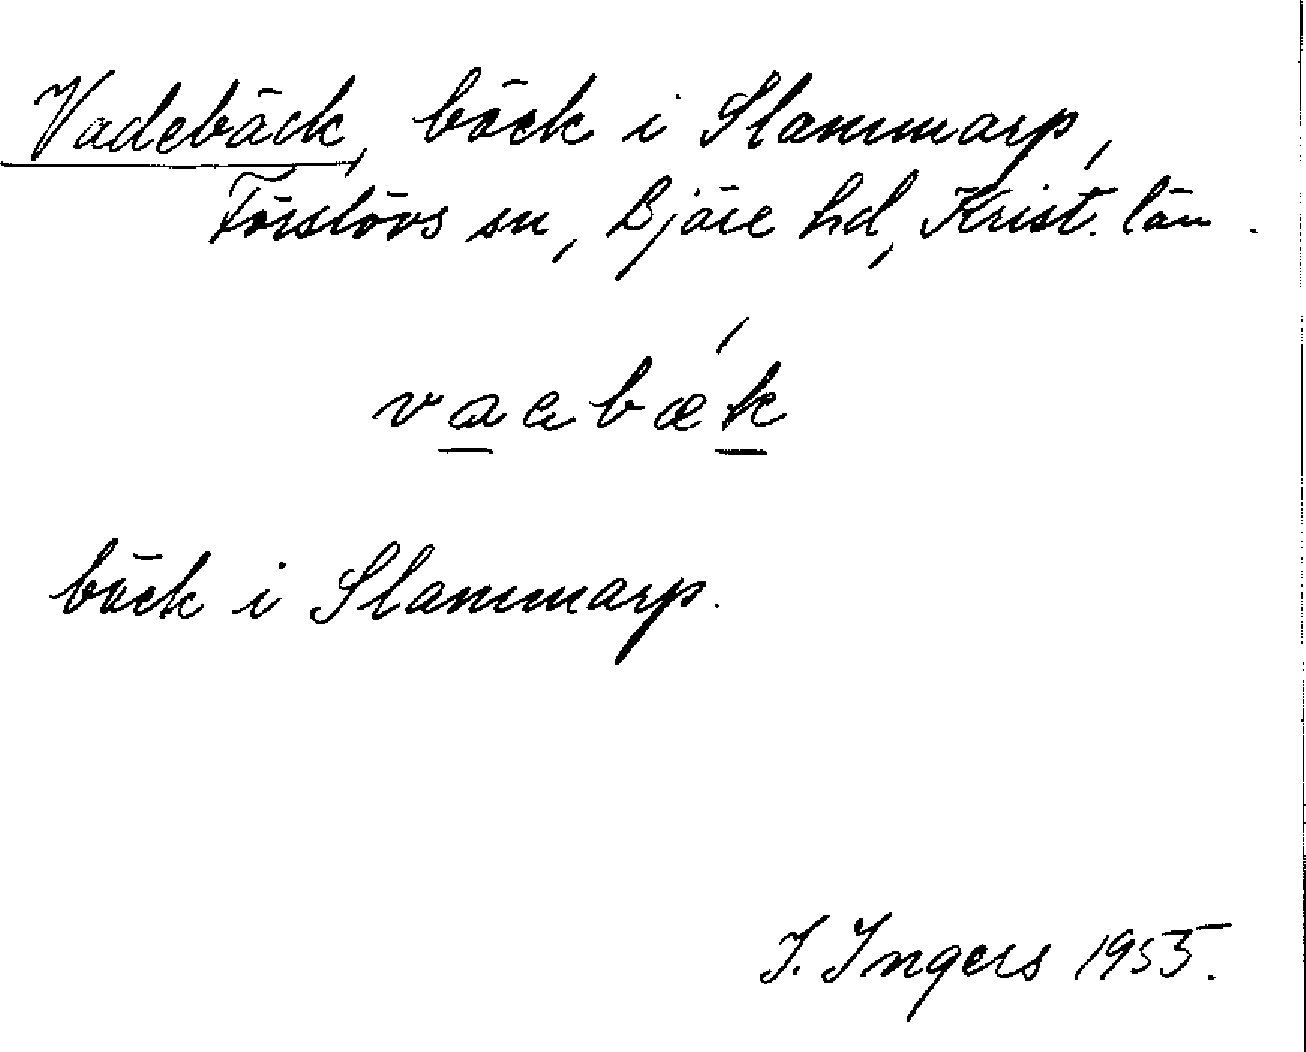 Vadebäck, bäck i Slammarp,
Förslövs sn, Bjäre hd, Krist. län.
vaebæ´k
bäck i Slammarp.
I. Ingers 1955.